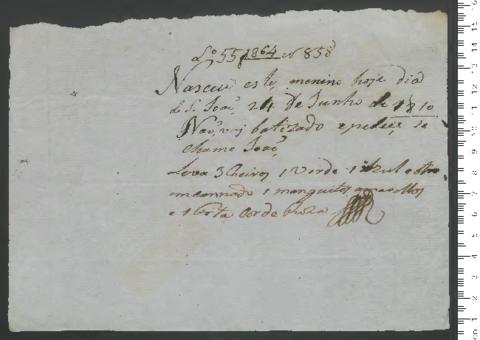 Lo 55 1864 N 858
Nasceu este menino hoje dia
de S. João 24 de Junho de 1810
Não vai batizado e pede-se se
chame João,
Leva 3 cueiros 1 Verde 1 azul e otro
emcarnado 1 manguitos amarellos
e 1 fita cor de Roza